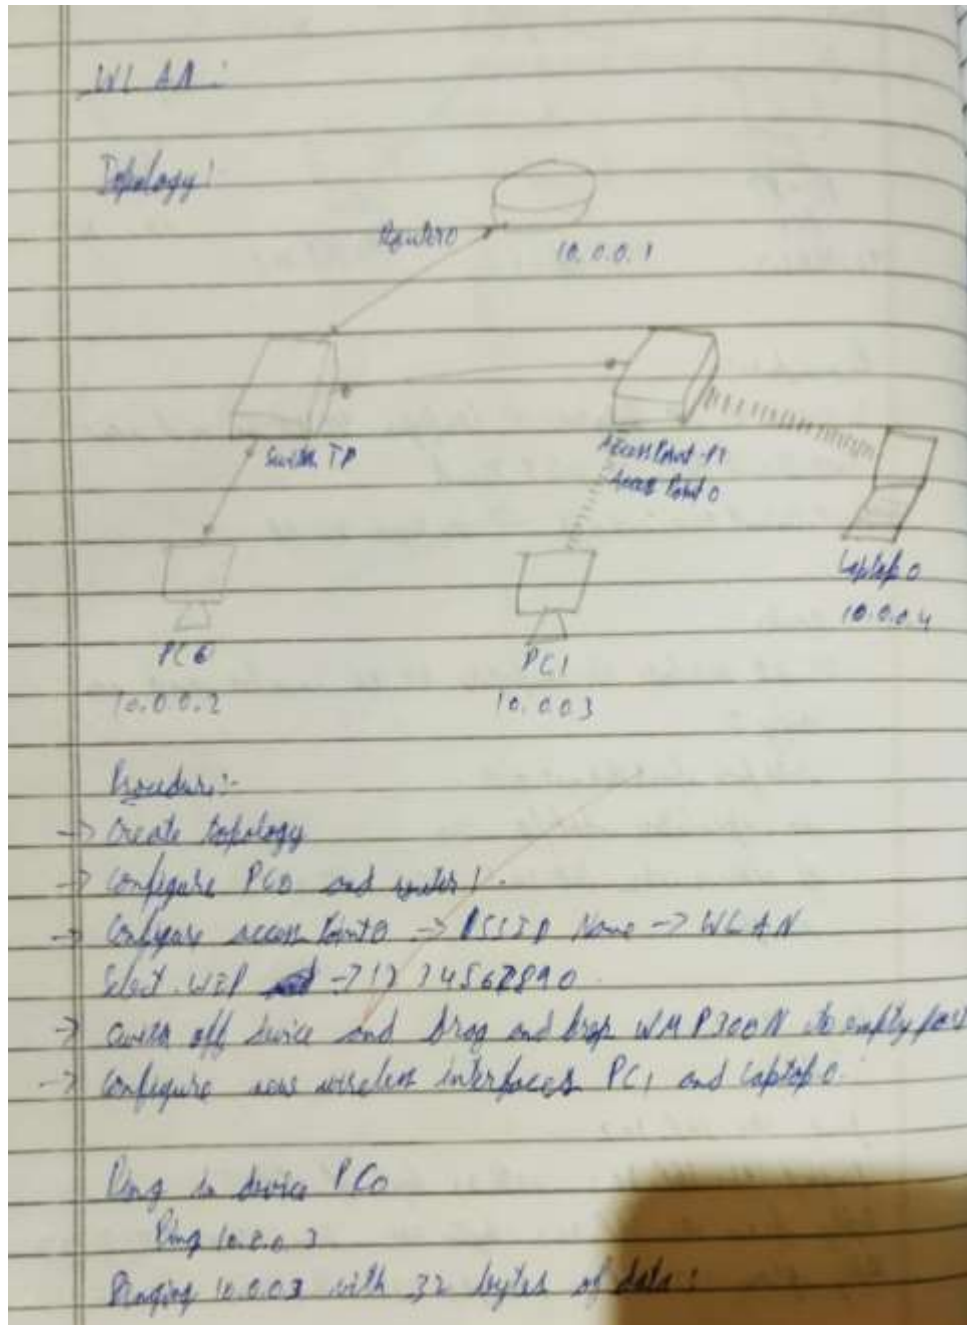 WLAN:
Topology:
Router0
10.0.0.1
Switch TP
AccessPoint-PT
Access Point 0
Laptop 0
10.0.0.4
PC0
10.0.0.2
PC1
10.0.03
Procedure:-
→ Create topology
→ Configure PC0 and router 1.
→ Configure access Point0 → SSID Name → WLAN
Select WEP → 1234567890
→ Switch off device and Drag and drop WMP300N to empty port
→ Configure new wireless interfaces PC1 and Laptop 0.
Ping in device PC0
Ping 10.0.0.3
Pinging 10.0.03 with 32 bytes of data: